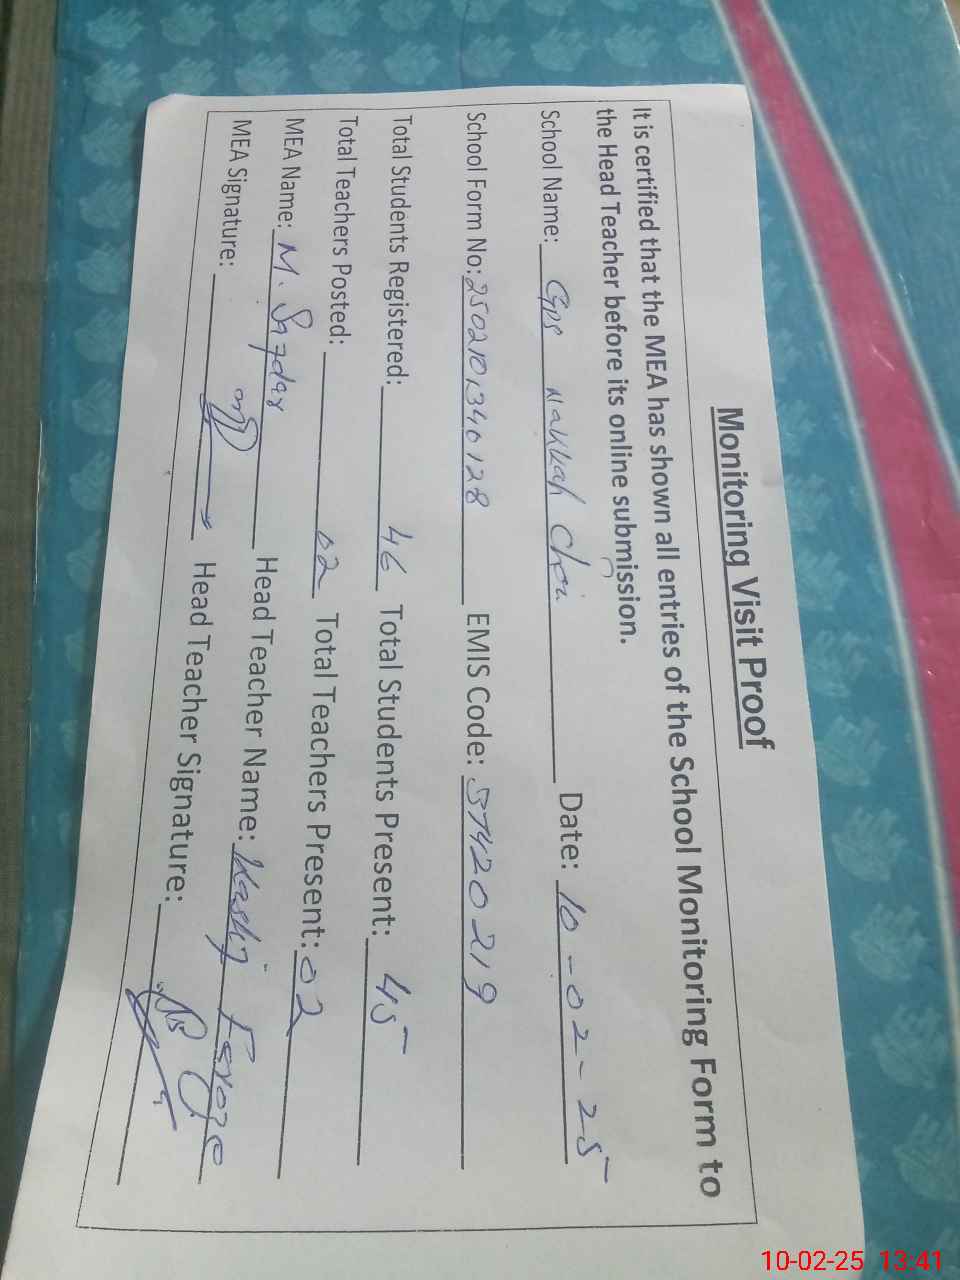 Monitoring Visit Proof
It is certified that the MEA has shown all entries of the School Monitoring Form to
the Head Teacher before its online submission.
School Name: GPS Nakkah Choi Date: 10-02-25
School Form No: 2502101340128 EMIS Code: 57420219
Total Students Registered: 46 Total Students Present: 45
Total Teachers Posted: 02 Total Teachers Present: 02
MEA Name: M. Safdar Head Teacher Name: Kashif Feroze
MEA Signature: Head Teacher Signature:
10-02-25 13:41